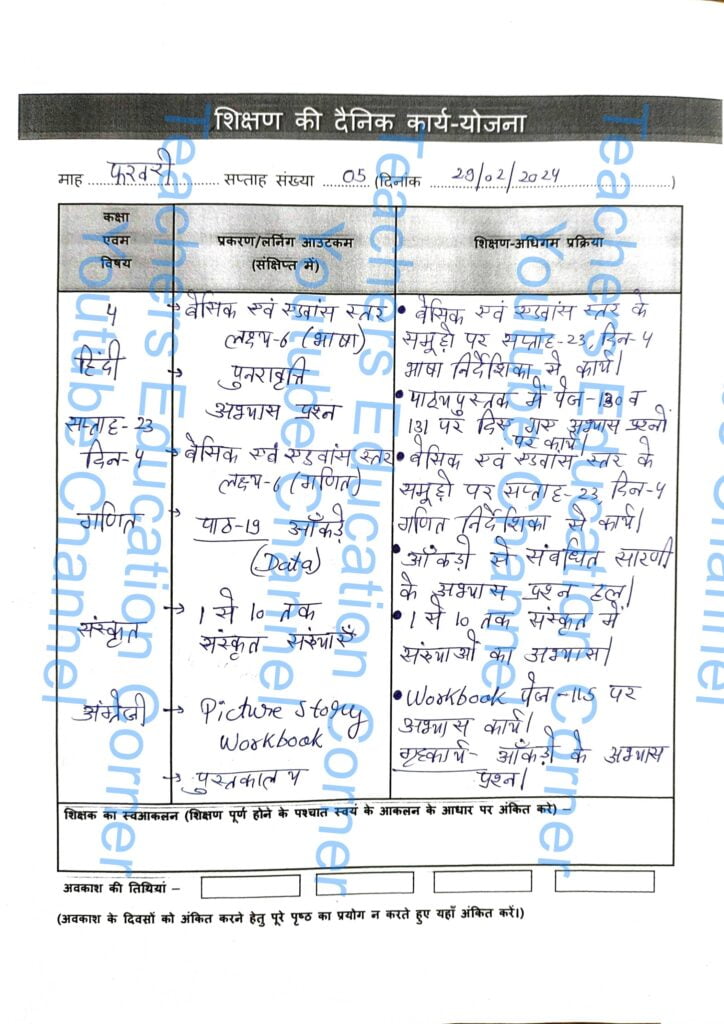 शिक्षण की दैनिक कार्य-योजना
माह फरवरी सप्ताह संख्या 05 (दिनांक 29/02/2024)
कक्षा
एवम
विषय
प्रकरण/लर्निंग आउटकम
(संक्षिप्त में)
शिक्षण-अधिगम प्रक्रिया
4
हिंदी
सप्ताह-23
दिन-4
गणित
संस्कृत
अंग्रेजी
→ बेसिक एवं एडवांस स्तर
लक्ष्य-6 (भाषा)
पुनरावृत्ति
अभ्यास प्रश्न
→ बेसिक एवं एडवांस स्तर
लक्ष्य-6 (गणित)
→ पाठ-19 आँकड़े
(Data)
→ 1 से 10 तक
संस्कृत संख्याएँ
→ Picture Story
Workbook
→ पुस्तकालय
• बेसिक एवं एडवांस स्तर के
समूहो पर सप्ताह-23, दिन-4
भाषा निर्देशिका से कार्य।
• पाठ्यपुस्तक में पेज-130 व
131 पर दिए गए अभ्यास प्रश्नों
पर कार्य।
• बेसिक एवं एडवांस स्तर के
समूहो पर सप्ताह-23, दिन-4
गणित निर्देशिका से कार्य।
• आँकड़ो से संबंधित सारणी
के अभ्यास प्रश्न हल।
• 1 से 10 तक संस्कृत में
संख्याओं का अभ्यास।
• Workbook पेज-115 पर
अभ्यास कार्य।
गृहकार्य- आँकड़ो के अभ्यास
प्रश्न।
शिक्षक का स्वआकलन (शिक्षण पूर्ण होने के पश्चात स्वयं के आकलन के आधार पर अंकित करे) –
अवकाश की तिथियां –
(अवकाश के दिवसों को अंकित करने हेतु पूरे पृष्ठ का प्रयोग न करते हुए यहाँ अंकित करें।)
Teachers Education Corner
Youtube Channel
Teachers Education Corner
Youtube Channel
Teachers Education Corner
Youtube Channel